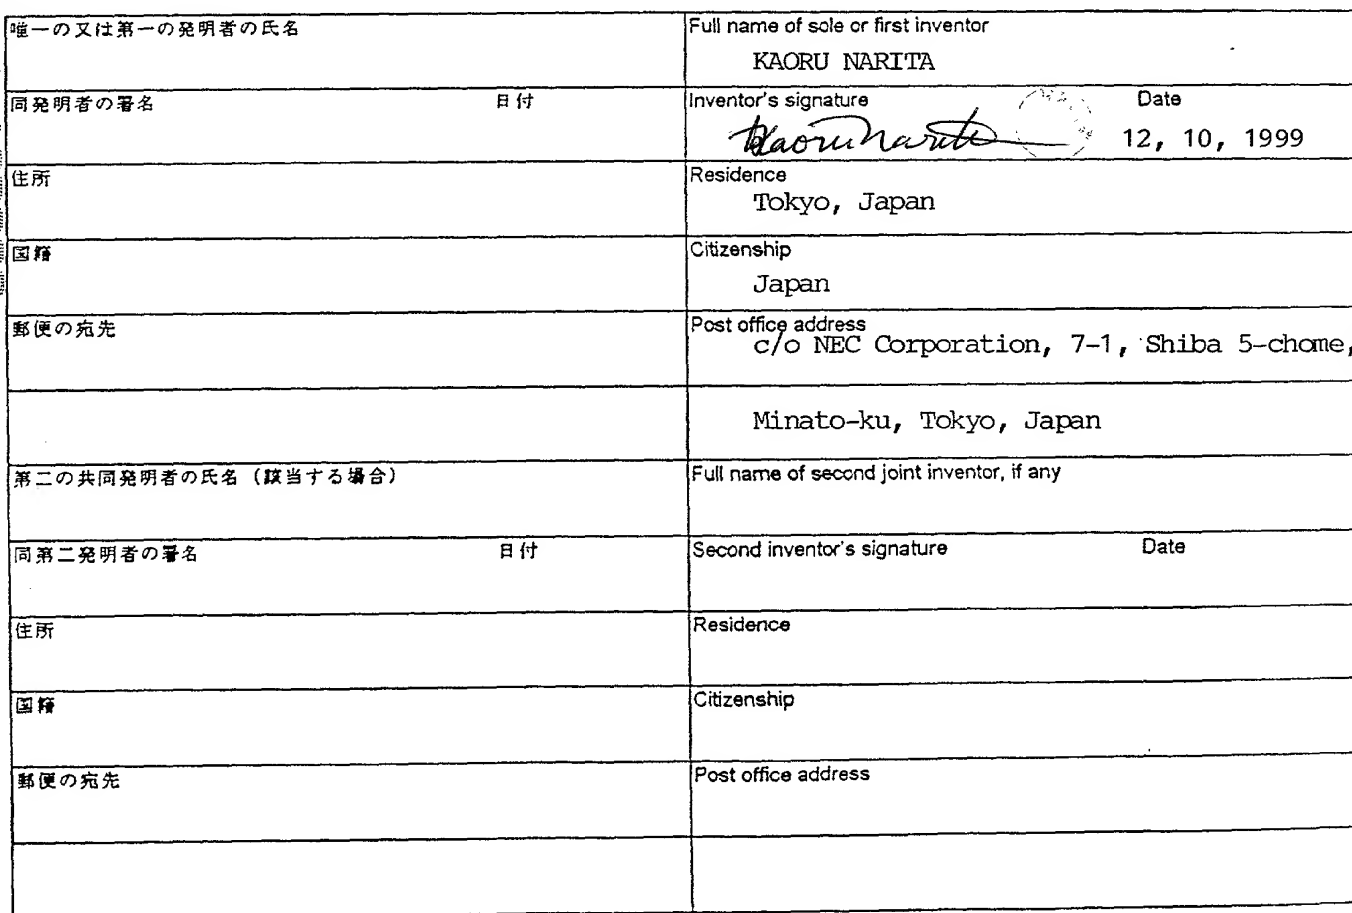 唯一の又は第一の発明者の氏名
Full name of sole or first inventor
KAORU NARITA
同発明者の署名 日付
Inventor's signature Date
Kaoru Narita 12, 10, 1999
住所
Residence
Tokyo, Japan
国籍
Citizenship
Japan
郵便の宛先
Post office address
c/o NEC Corporation, 7-1, Shiba 5-chome,
Minato-ku, Tokyo, Japan
第二の共同発明者の氏名(該当する場合)
Full name of second joint inventor, if any
同第二発明者の署名 日付
Second inventor's signature Date
住所
Residence
国籍
Citizenship
郵便の宛先
Post office address